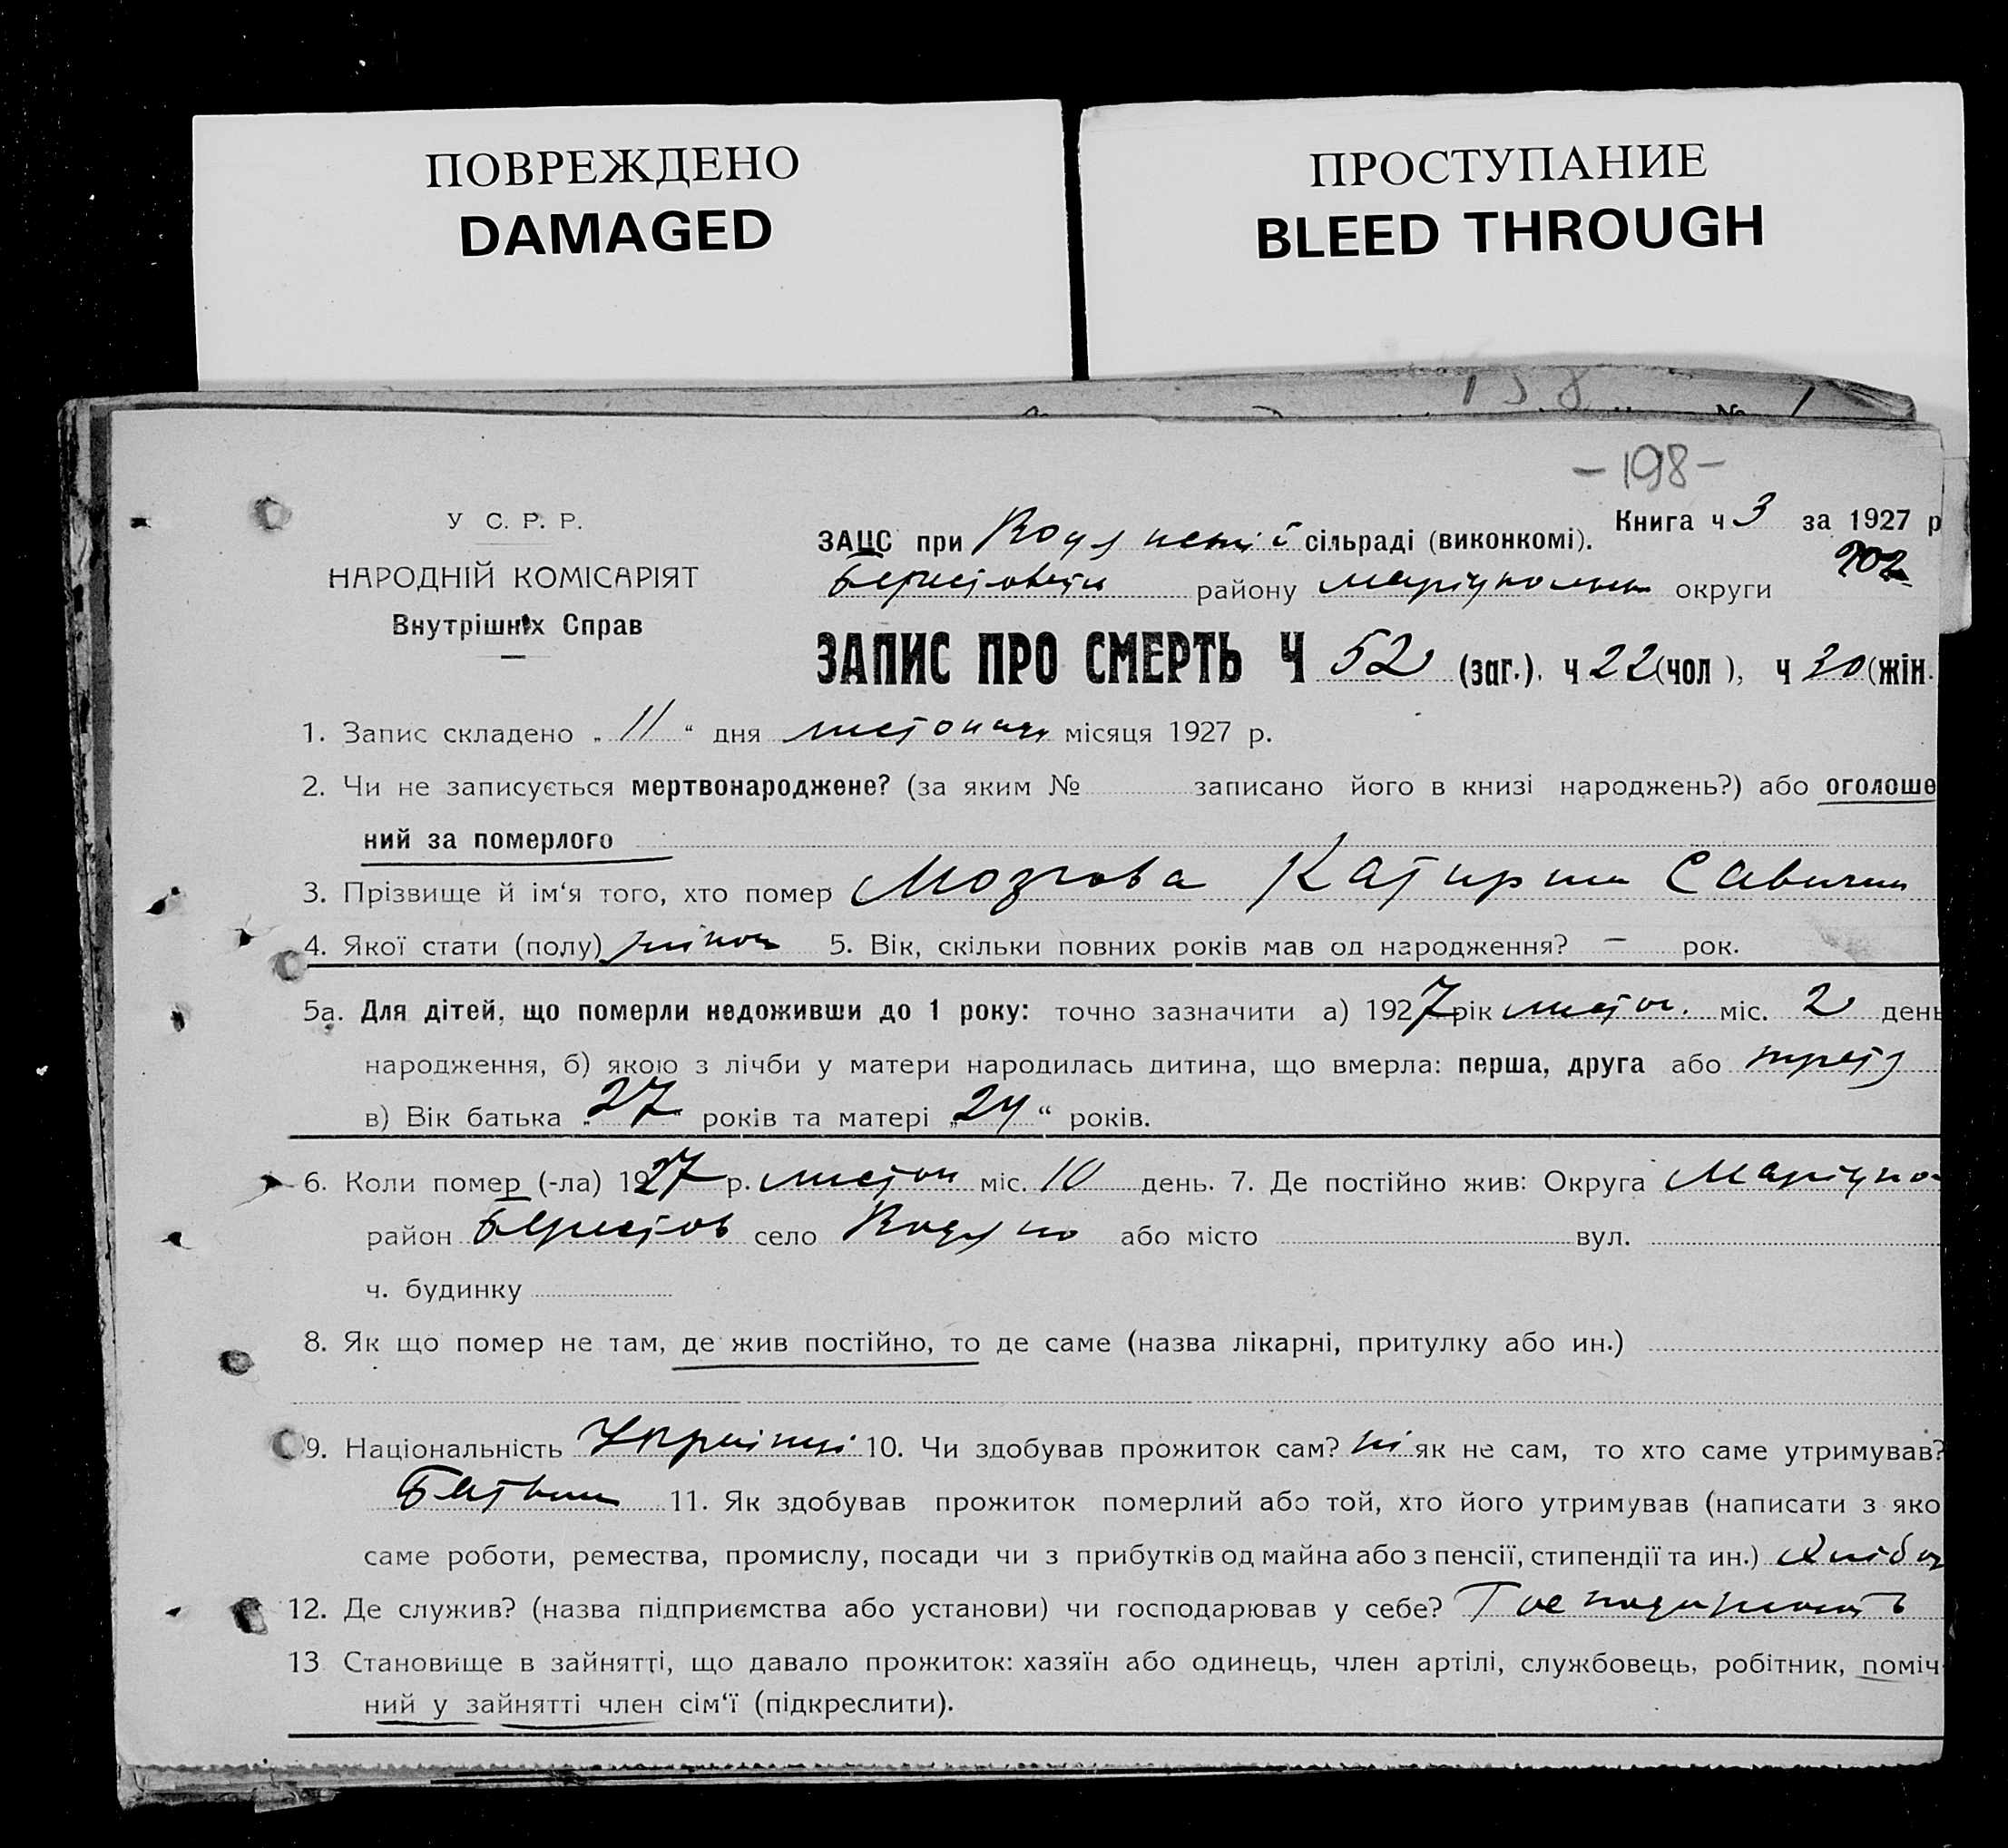 ПОВРЕЖДЕНО
DAMAGED
ПРОСТУПАНИЕ
BLEED THROUGH
138
№ 1
-198-
У С. Р. Р.
НАРОДНІЙ КОМІСАРІЯТ
Внутрішніх Справ
Книга ч 3 за 1927 р
ЗАЦС при сільраді (виконкомі).
202
району округи
ЗАПИС ПРО СМЕРТЬ Ч 52 (заг.). ч 22 (чол ), ч 30 (жін.
1. Запис складено „ 11 “ дня листопада місяця 1927 р.
2. Чи не записується мертвонароджене? (за яким № записано його в книзі народжень?) або оголоше
ний за померлого
3. Прізвище й ім‘я того, хто помер Мозгова Катирина Савична
4. Якої стати (полу) жіноч 5. Вік, скільки повних років мав од народження? — рок.
5а. Для дітей, що померли недоживши до 1 року: точно зазначити а) 1927 рік листоп. міс. 2 день
народження, б) якою з лічби у матери народилась дитина, що вмерла: перша, друга або третя
в) Вік батька „ 27 “ років та матері „ 24 “ років.
6. Коли помер (-ла) 1927 р. листоп міс. 10 день. 7. Де постійно жив: Округа Маріупо
район Берестов село або місто вул.
ч. будинку
8. Як що помер не там, де жив постійно, то де саме (назва лікарні, притулку або ин.)
9. Національність 10. Чи здобував прожиток сам? ні як не сам, то хто саме утримував?
Батьки 11. Як здобував прожиток померлий або той, хто його утримував (написати з яко
саме роботи, ремества, промислу, посади чи з прибутків од майна або з пенсії, стипендії та ин.)
12. Де служив? (назва підприємства або установи) чи господарював у себе?
13 Становище в зайнятті, що давало прожиток: хазяїн або одинець, член артілі, службовець, робітник, поміч
ний у зайнятті член сім‘ї (підкреслити).